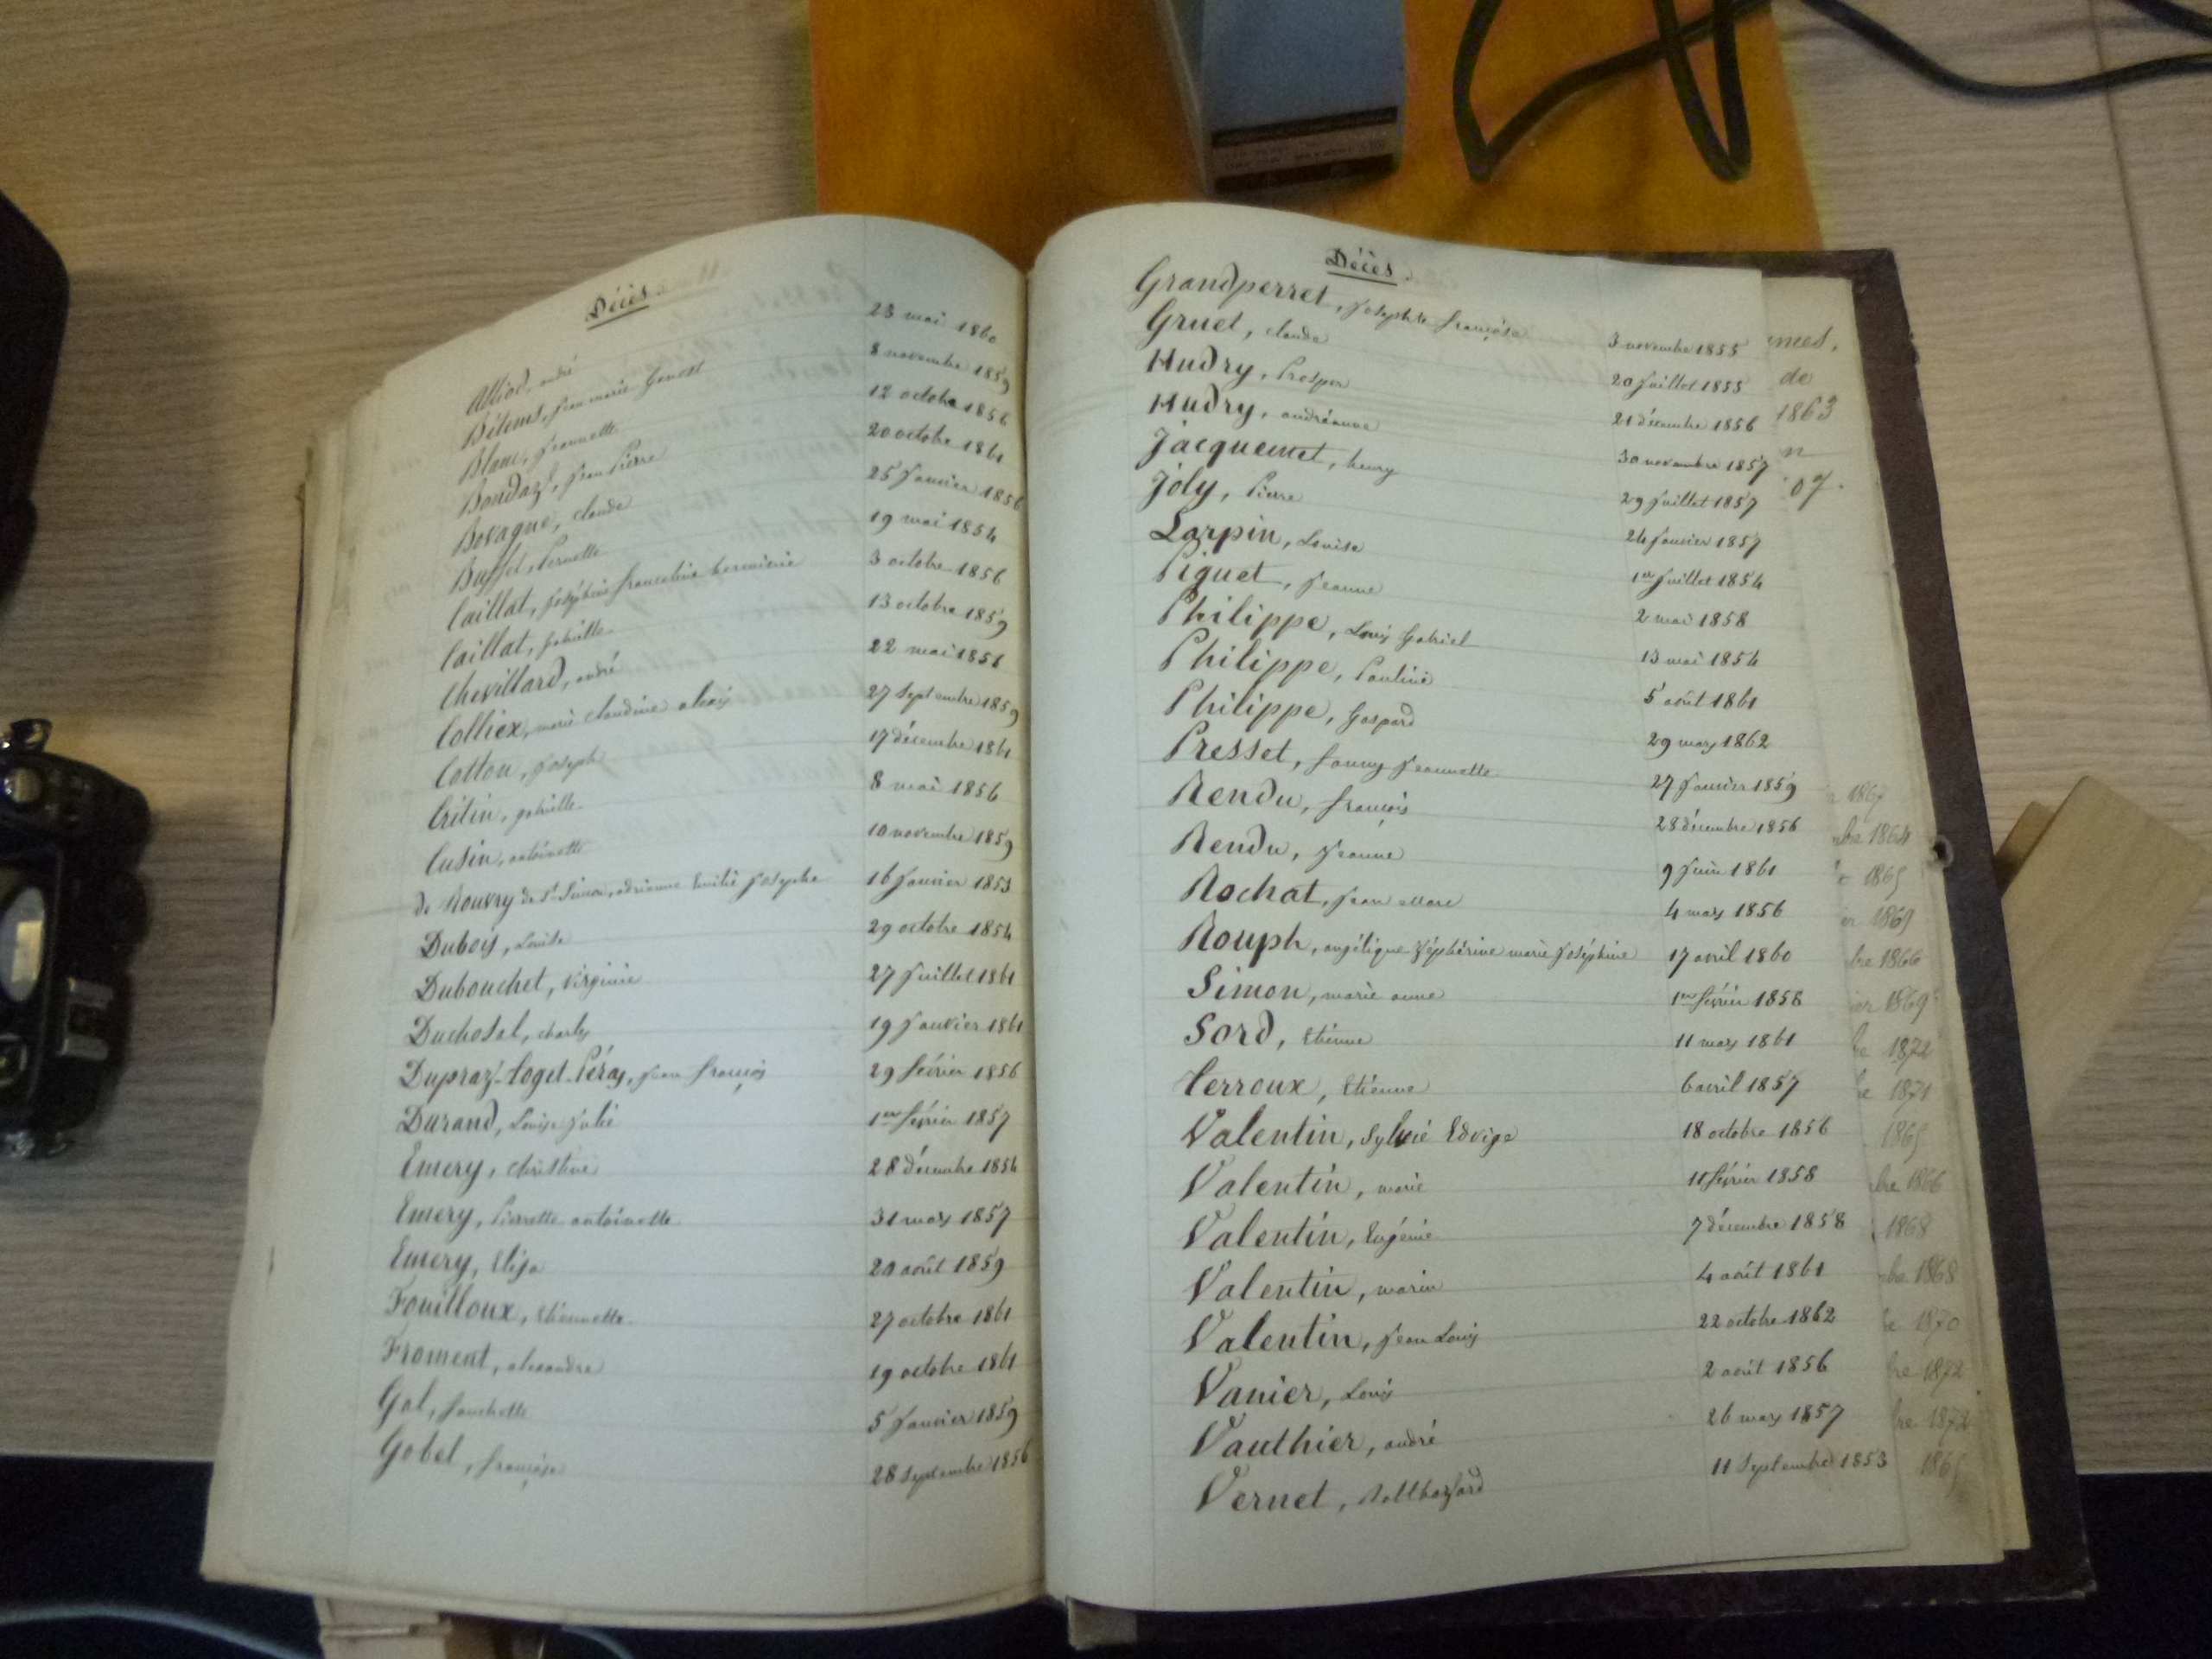 Décès.
Alliod, andré 23 mai 1860
Bétems, jean marie Genest 8 novembre 1859
Blanc, jeannette 12 octobre 1856
Bondaz, jean Pierre 20 octobre 1861
Bovagne, claude 25 janvier 1856
Buffet, Pernette 19 mai 1854
Caillat, joséphine franceline herminie 3 octobre 1856
Caillat, 13 octobre 1859
Chevillard, andré 22 mai 1856
Colliex, marie claudine aloïs 27 septembre 1859
Cotton, joseph 17 décembre 1861
Critin, 8 mai 1856
Cusin, antoinette 10 novembre 1859
de Rouvry de St Simon, adrienne Emilie josephe 16 janvier 1853
Dubois, Louise 29 octobre 1854
Dubouchet, virginie 27 juillet 1861
Duchosal, charles 19 janvier 1861
Dupraz-Loget-Péray, jean françois 29 février 1856
Durand, Louise julie 1er février 1857
Emery, christine 28 décembre 1854
Emery, Pierrette antoinette 31 mars 1857
Emery, Eliza 20 août 1859
Fouilloux, Etiennette 27 octobre 1861
Froment, alexandre 19 octobre 1861
Gal, fanchette 5 janvier 1859
Gobel, françoise 28 septembre 1856
Décès.
Grandperret, josephte françoise 3 novembre 1855
Gruet, claude 20 juillet 1855
Hudry, Prosper 21 décembre 1856
Hudry, andréanne 30 novembre 1857
Jacquemet, henry 29 juillet 1857
Joly, Pierre 24 janvier 1857
Larpin, Louise 1er juillet 1854
Piguet, jeanne 2 mai 1858
Philippe, Louis Gabriel 13 mai 1854
Philippe, Pauline 5 août 1861
Philippe, Gaspard 29 mars 1862
Presset, fanny jeannette 27 janvier 1859
Rendu, françois 28 décembre 1856
Rendu, jeanne 9 juin 1861
Rochat, jean marc 4 mars 1856
Rouph, angélique Zéphérine marie joséphine 17 avril 1860
Simon, marie anne 1er février 1858
Sord, Etienne 11 mars 1861
Terroux, Etienne 6 avril 1857
Valentin, Sylvie Edvige 18 octobre 1856
Valentin, marie 11 février 1858
Valentin, Eugénie 7 décembre 1858
Valentin, marie 4 août 1861
Valentin, jean Louis 22 octobre 1862
Vanier, Louis 2 août 1856
Vauthier, andré 26 mars 1857
Vernet, 11 septembre 1853
de
1863
1867
1864
1865
1869
1866
1869
1872
1871
1865
1866
1868
1868
1870
1872
1872